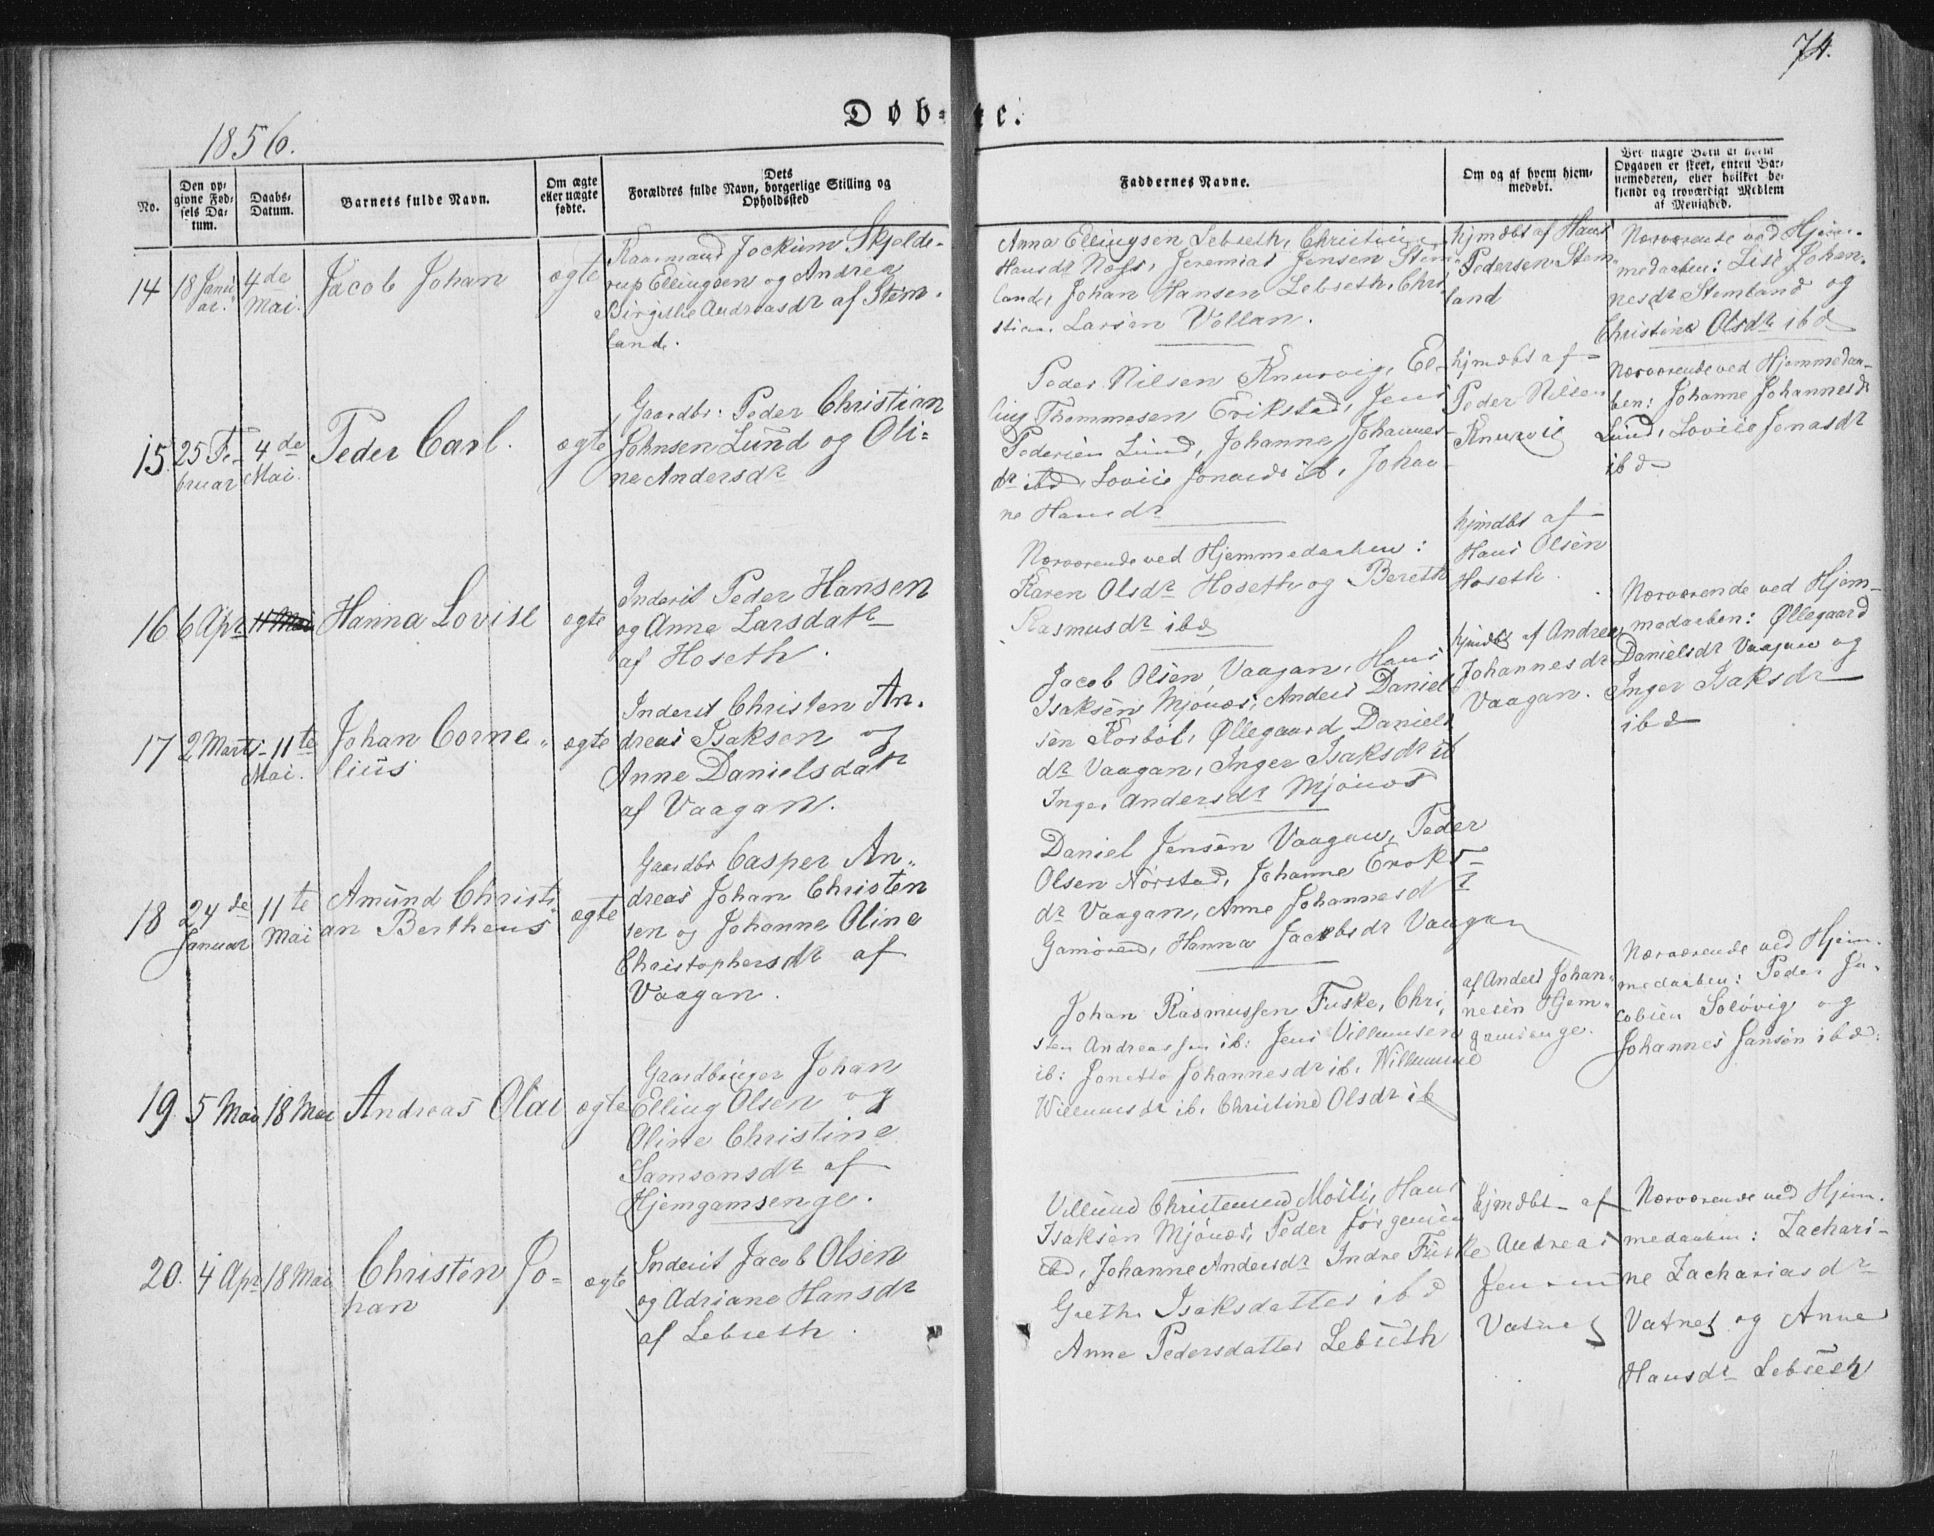 74.
Døb-
ne.
1856.
No.
Den op-
givne Fød-
sels Da-
tum.
Daabs-
Datum.
Barnets fulde Navn.
Om ægte
eller uægte
fødte.
Dets
Forældres fulde Navn, borgerlige Stilling og
Opholdssted
Faddernes Navne.
Om og af hvem hjem-
medøbt.
Ved uægte Børn af hvem
Opgaven er skeet, enten Bar-
nemoderen, eller hvilket be-
kjendt og troværdigt Medlem
af Menighed.
14
18 Janu
ar.
4de
Mai.
Jacob Johan
ægte
Jockum Skjelde-
rup Ellingsen og Andrea
Birgislie Andreasdr af Stem-
land.
Anna Ellingsen Lebseth, Christine
Hansdr Næss, Jeremias Jensen Stem
land, Johan Hansen Lebseth, Chri
stian Larsen Vollan.
hjmdbt af Hans
Pedersen Stem
land
Nærværende ved Hjem-
medaaben: Lise Johan-
nesdr Stemland og
Christine Olsdr ibd
15
25 Fe-
bruar
4de
Mai.
Peder Carl.
ægte
Gaardbr: Peder Christian
Johnsen Lund og Oli-
ne Andersdr
Peder Nilsen Knurvig, El-
ling Thommesen Erikstad, Jens
Pedersen Lund, Johanne Johannes-
dr ibd, Lovise Jonasdr ib, Johan
ne Hansdr
hjmdbt af
Peder Nilsen
Knurvig
Nærværende ved Hjemmedaa-
ben: Johanne Johannesdr
Lund, Lovise Jonasdr
ibd
16
6 Apr
11 Mai
Hanna Lovise
ægte
Inderst Peder Hansen
og Anne Larsdatr
af Hoseth.
Nærværende ved Hjemmedaaben:
Karen Olsdr Hoseth og Bereth
Rasmusdr ibd
hjmdbt af
Hans Olsen
Hoseth.
17
2 Marts
11te
Mai.
Johan Corne-
lius
ægte
Inderst Christen An-
dreas Isaksen og
Anne Danielsdatr
af Vaagan.
Jacob Olsen Vaagan, Hans
Isaksen Mjønes, Anders Daniel
sen Kosbøl, Øllegaard Daniels
dr Vaagan, Inger Isaksdr ib
Inger Andersdr Mjønes
hjmdbt af Andrea
Johannesdr
Vaagan.
Nærværende ved Hjem-
medaaben: Øllegaard
Danielsdr Vaagan og
Inger Isaksdr
ibd
18
24de
Januar
11te
Mai
Amund Christi
an Bertheus
ægte
Gaardbr Casper An-
dreas Johan Christen
sen og Johanne Oline
Christophersdr af
Vaagan.
Daniel Jensen Vaagan, Peder
Olsen Nørstad, Johanne Enoks-
dr Vaagan, Anne Johannesdr
Hanna Jacobsdr Vaagan
19.
5 Mai
18 Mai
Andreas Olai
ægte
Gaardbruger Johan
Elling Olsen og
Oline Christine
Samsonsdr af
Hjemgamsenge.
Johan Rasmussen Fuske, Chri
sten Andreassen ib: Jens Villumsen
ib: Jonette Johannesdr ib, Willumine
Willumsdr ib, Christine Olsdr ib
af Anders Johan-
nesen Hjem-
gamsenge.
Nærværende ved Hjem-
medaaben: Peder Ja-
cobsen Soløvig og
Johannes Jansen ibd:
20.
4 Apr
18 Mai
Christen Jo-
han
ægte
Inderst Jacob Olsen
og Adriane Hansdr
af Lebseth.
Villund Christensen Mosti, Hans
Isaksen Mjønes, Peder Jørgensen
ibd, Johanne Andersdr Indre Fuske
Grethe Isaksdatter ibd
Anne Pedersdatter Lebseth
hjmdbt af
Andreas
Jensen
Vatnes
Nærværende ved Hjem-
medaaben: Zachari-
ne Zachariasdr
Vatnes og Anne
Hansdr Lebseth